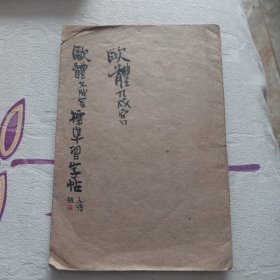 歐體九成宮
歐體九成宮標準習字帖